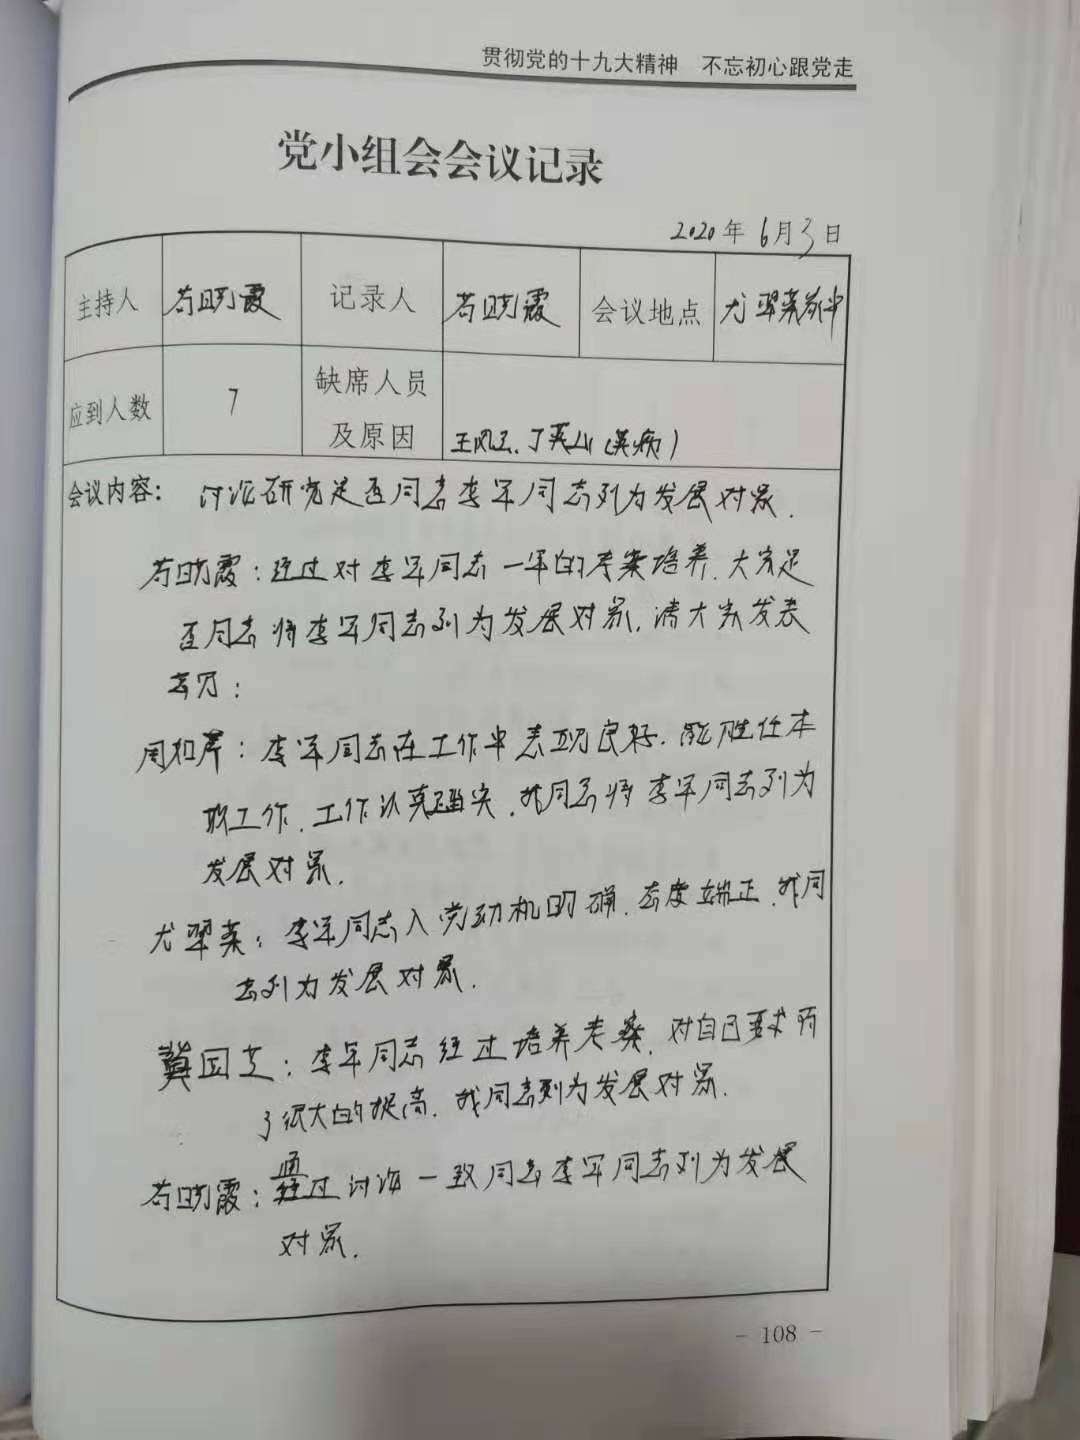 贯彻党的十九大精神 不忘初心跟党走
党小组会会议记录
2020年6月3日
主持人 苟晓霞 记录人 苟晓霞 会议地点 尤翠英家中
应到人数 7 缺席人员
及原因 王凤玉、丁英山(因病)
会议内容: 讨论研究是否同意李军同志列为发展对象.
苟晓霞:经过对李军同志一年的考察培养.大家是
否同意将李军同志列为发展对象.请大家发表
意见:
周和芹:李军同志在工作中表现良好.能胜任本
职工作.工作认真踏实.我同意将李军同志列为
发展对象.
尤翠英:李军同志入党动机明确.态度端正.我同
意列为发展对象.
冀国芝:李军同志经过培养考察.对自己要求有
了很大的提高.我同意列为发展对象.
苟晓霞:通过讨论一致同意李军同志列为发展
对象.
- 108 -